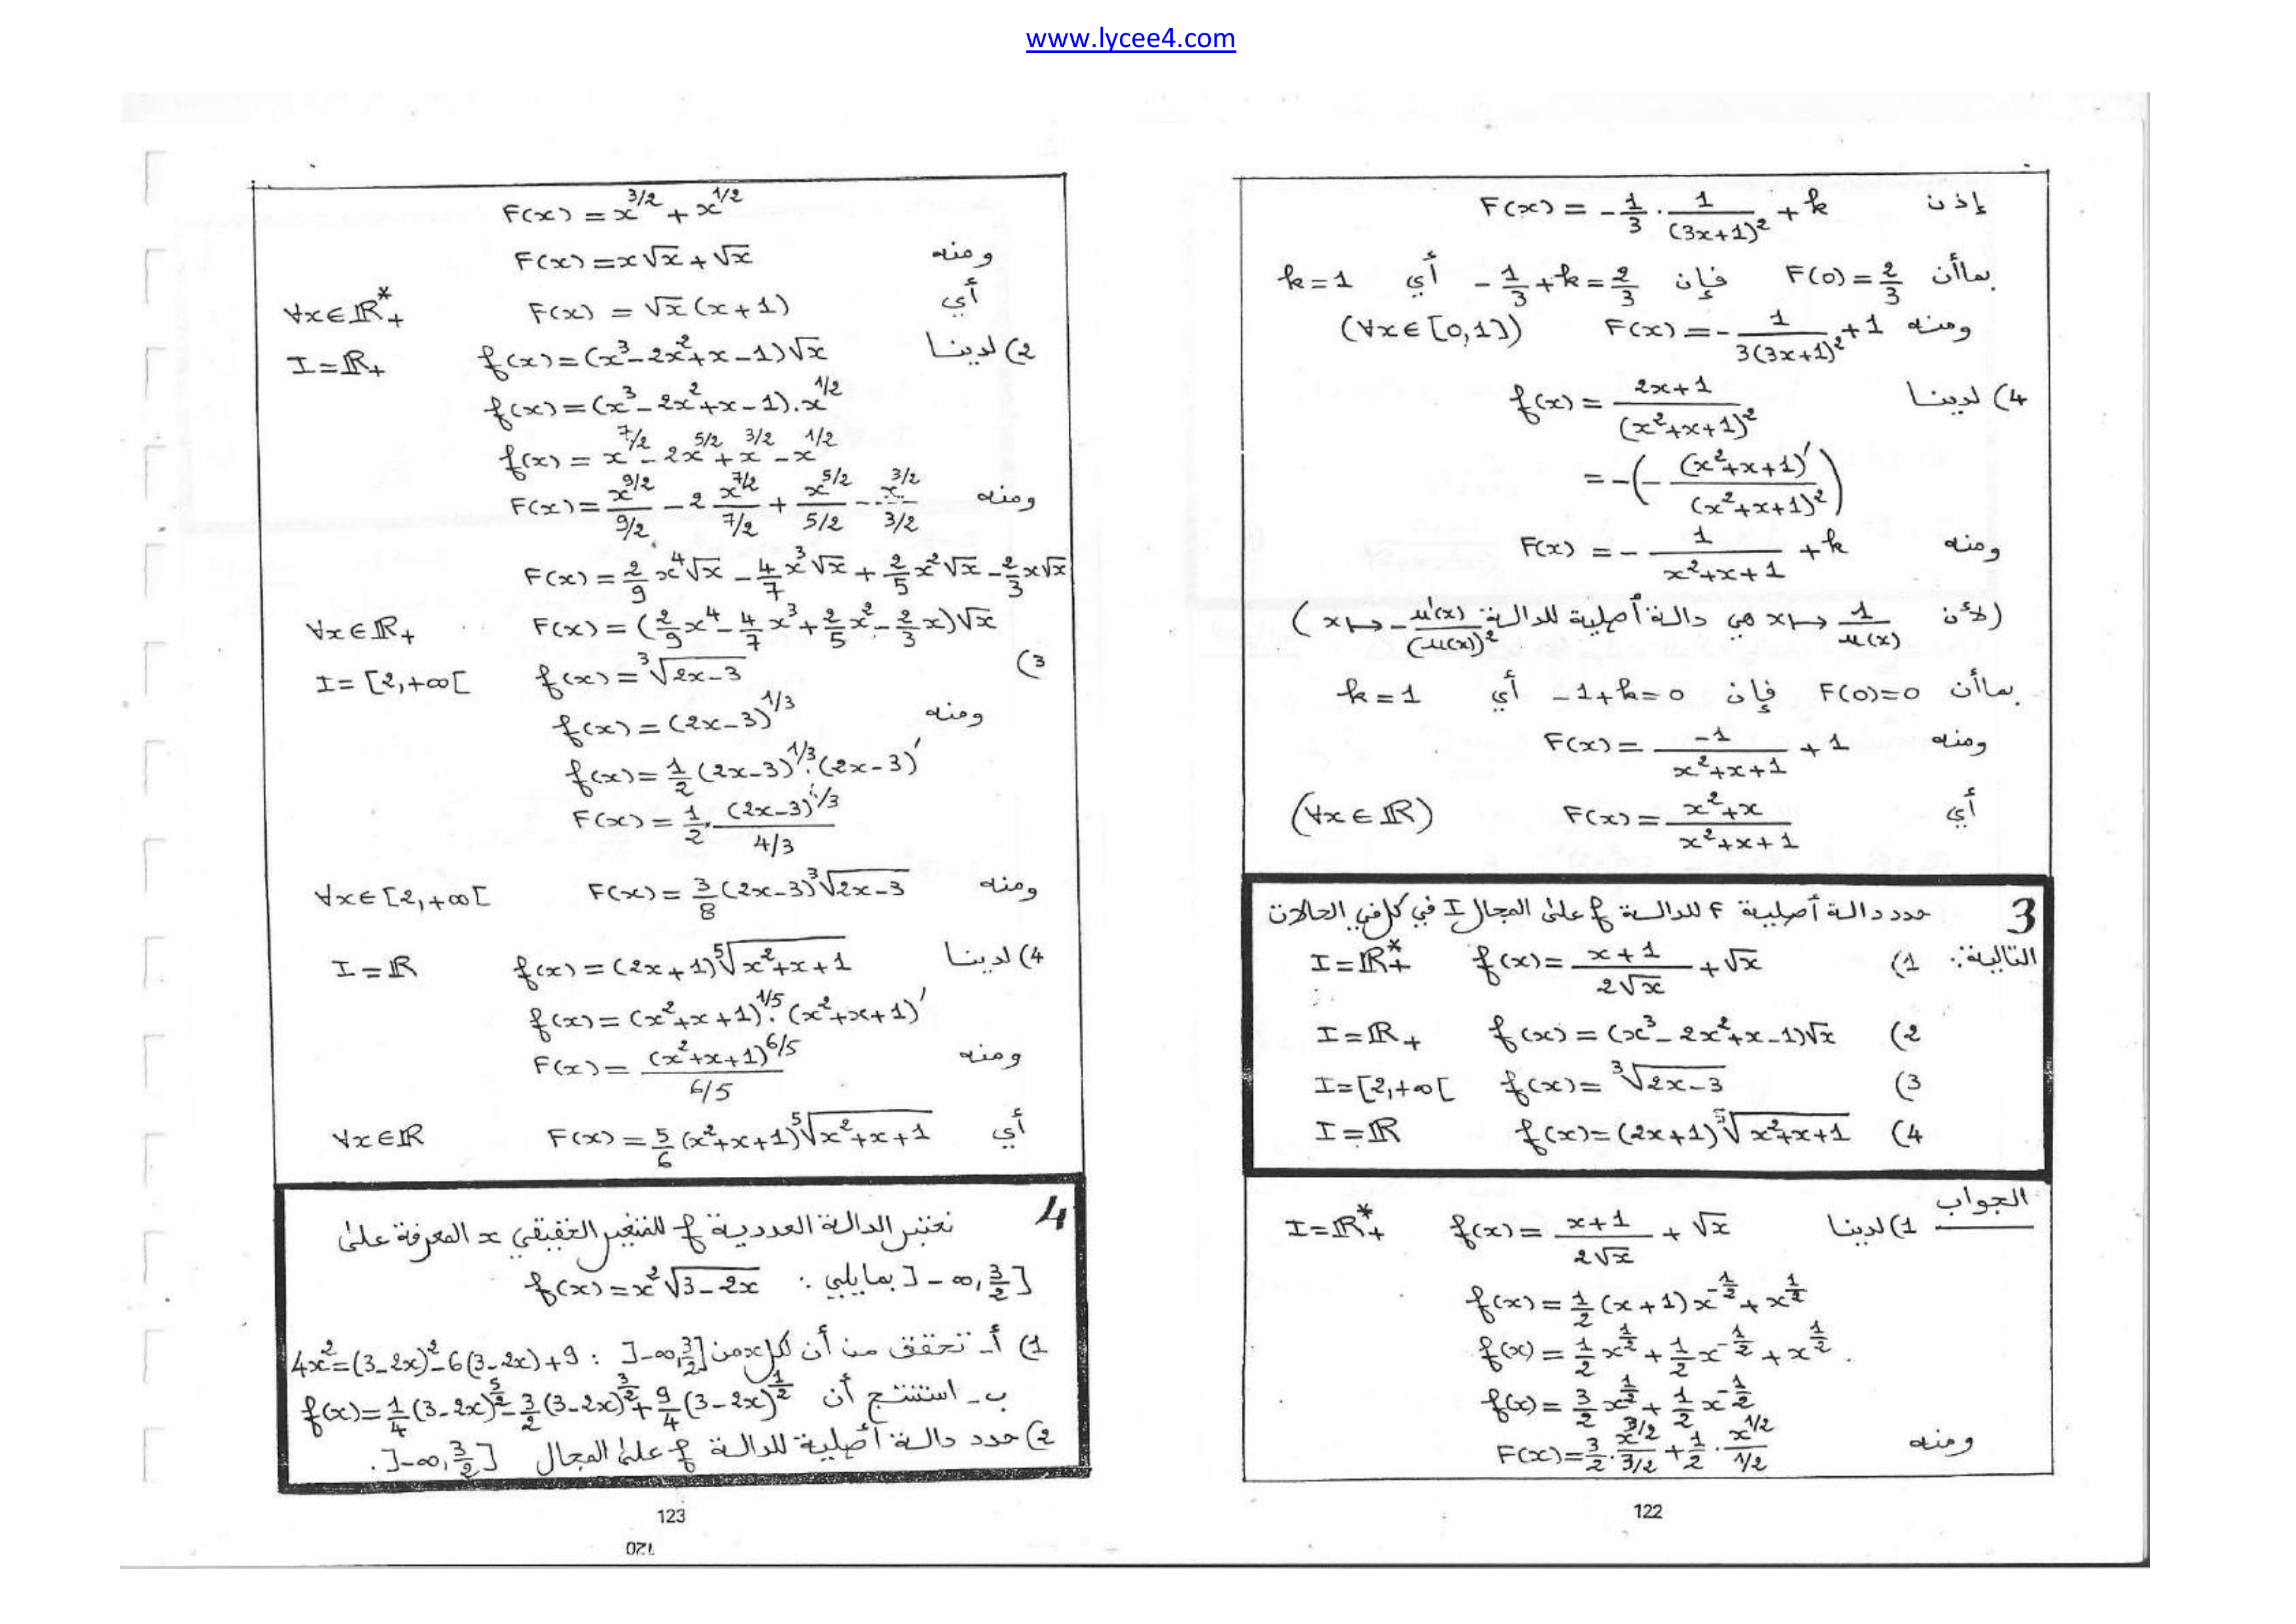 www.lycee4.com
إذن F(x) = -1/3 · 1/(3x+1)² + k
بماأن F(0) = 2/3 فإن -1/3 + k = 2/3 أي k = 1
ومنه F(x) = - 1/(3(3x+1)²) + 1 (∀x∈[0,1])
4) لدينا f(x) = (2x+1)/(x²+x+1)²
= -(- (x²+x+1)'/(x²+x+1)²)
ومنه F(x) = - 1/(x²+x+1) + k
(لأن x ↦ 1/u(x) هي دالة أصلية للدالة x ↦ - u'(x)/(u(x))²)
بماأن F(0)=0 فإن -1+k=0 أي k=1
ومنه F(x) = -1/(x²+x+1) + 1
أي F(x) = (x²+x)/(x²+x+1) (∀x∈ℝ)
3 حدد دالة أصلية F للدالة f على المجال I في كل في الحالات
التالية: 1) f(x) = (x+1)/(2√x) + √x I=ℝ*₊
2) f(x) = (x³-2x²+x-1)√x I=ℝ₊
3) f(x) = ³√(2x-3) I=[2,+∞[
4) f(x) = (2x+1)⁵√(x²+x+1) I=ℝ
الجواب
1) لدينا f(x) = (x+1)/(2√x) + √x I=ℝ*₊
f(x) = 1/2 (x+1)x^(-1/2) + x^(1/2)
f(x) = 1/2 x^(1/2) + 1/2 x^(-1/2) + x^(1/2).
f(x) = 3/2 x^(1/2) + 1/2 x^(-1/2)
ومنه F(x) = 3/2 · x^(3/2)/(3/2) + 1/2 · x^(1/2)/(1/2)
122
F(x) = x^(3/2) + x^(1/2)
ومنه F(x) = x√x + √x
أي F(x) = √x(x+1) ∀x∈ℝ*₊
2) لدينا f(x) = (x³-2x²+x-1)√x I=ℝ₊
f(x) = (x³-2x²+x-1).x^(1/2)
f(x) = x^(7/2) - 2x^(5/2) + x^(3/2) - x^(1/2)
ومنه F(x) = x^(9/2)/(9/2) - 2 x^(7/2)/(7/2) + x^(5/2)/(5/2) - x^(3/2)/(3/2)
F(x) = 2/9 x⁴√x - 4/7 x³√x + 2/5 x²√x - 2/3 x√x
F(x) = (2/9 x⁴ - 4/7 x³ + 2/5 x² - 2/3 x)√x ∀x∈ℝ₊
3) f(x) = ³√(2x-3) I=[2,+∞[
ومنه f(x) = (2x-3)^(1/3)
f(x) = 1/2 (2x-3)^(1/3).(2x-3)'
F(x) = 1/2 . (2x-3)^(4/3)/(4/3)
ومنه F(x) = 3/8 (2x-3)³√(2x-3) ∀x∈[2,+∞[
4) لدينا f(x) = (2x+1)⁵√(x²+x+1) I=ℝ
f(x) = (x²+x+1)^(1/5).(x²+x+1)'
ومنه F(x) = (x²+x+1)^(6/5)/(6/5)
أي F(x) = 5/6 (x²+x+1)⁵√(x²+x+1) ∀x∈ℝ
4 نعتبر الدالة العددية f للمتغير الحقيقي x المعرفة على
]-∞,3/2] بمايلي : f(x) = x²√(3-2x)
1) أ- تحقق من أن لكل x من ]-∞,3/2] : 4x²=(3-2x)²-6(3-2x)+9
ب- استنتج أن f(x) = 1/4 (3-2x)^(5/2) - 3/2 (3-2x)^(3/2) + 9/4 (3-2x)^(1/2)
2) حدد دالة أصلية للدالة f على المجال ]-∞,3/2].
123
120